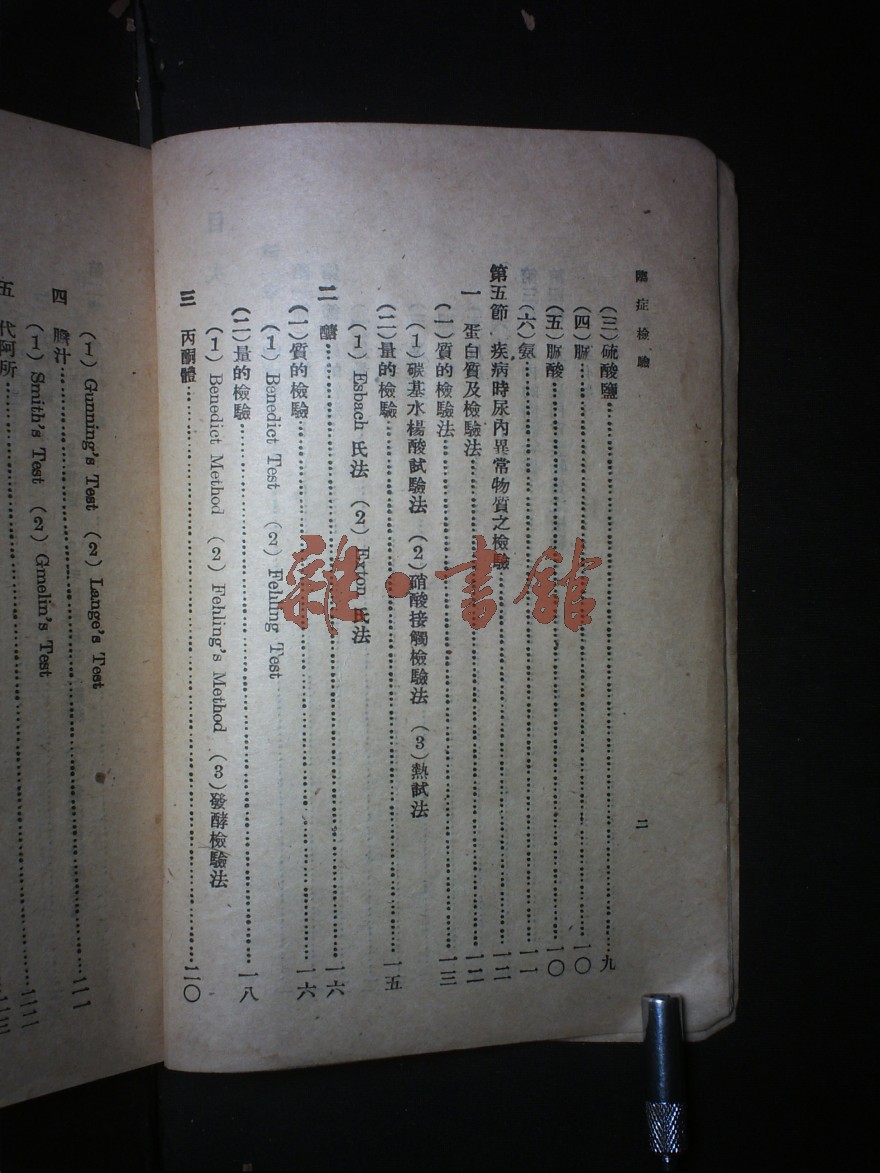 臨症檢驗 二
(三)硫酸鹽…………九
(四)脲…………一〇
(五)脲酸…………一〇
(六)氨…………一一
第五節 疾病時尿內異常物質之檢驗…………一二
一 蛋白質及檢驗法…………一二
(一)質的檢驗法…………一三
(1)碳基水楊酸試驗法 (2)硝酸接觸檢驗法 (3)熱試法
(二)量的檢驗…………一五
(1) Esbach 氏法 (2) Exton 氏法
二 醣…………一六
(一)質的檢驗…………一六
(1) Benedict Test (2) Fehling Test
(二)量的檢驗…………一八
(1) Benedict Method (2) Fehling's Method (3)發酵檢驗法
三 丙酮體…………二〇
(1) Gunning's Test (2) Lange's Test
四 膽汁…………二一
(1) Smith's Test (2) Gmelin's Test
五 代阿所
雜·書館